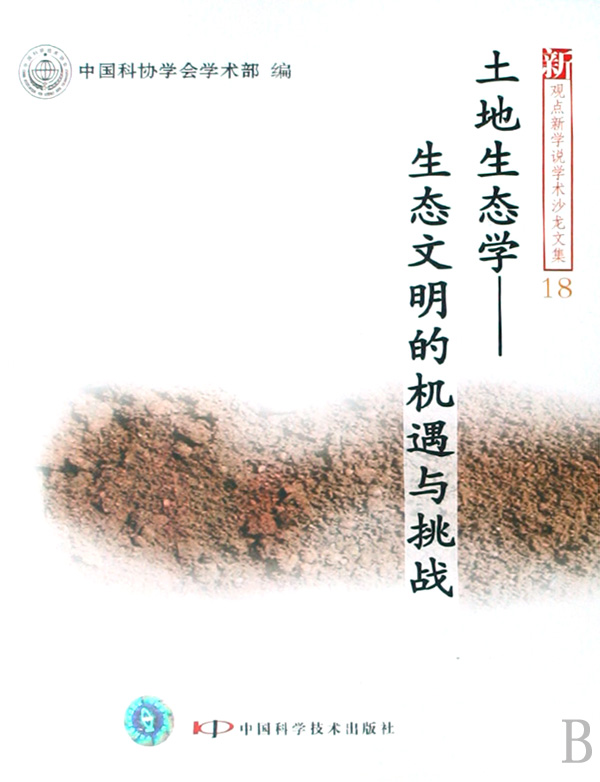 中国科协学会学术部 编
新
观点新学说学术沙龙文集
18
土地生态学——
生态文明的机遇与挑战
中国科学技术出版社
B